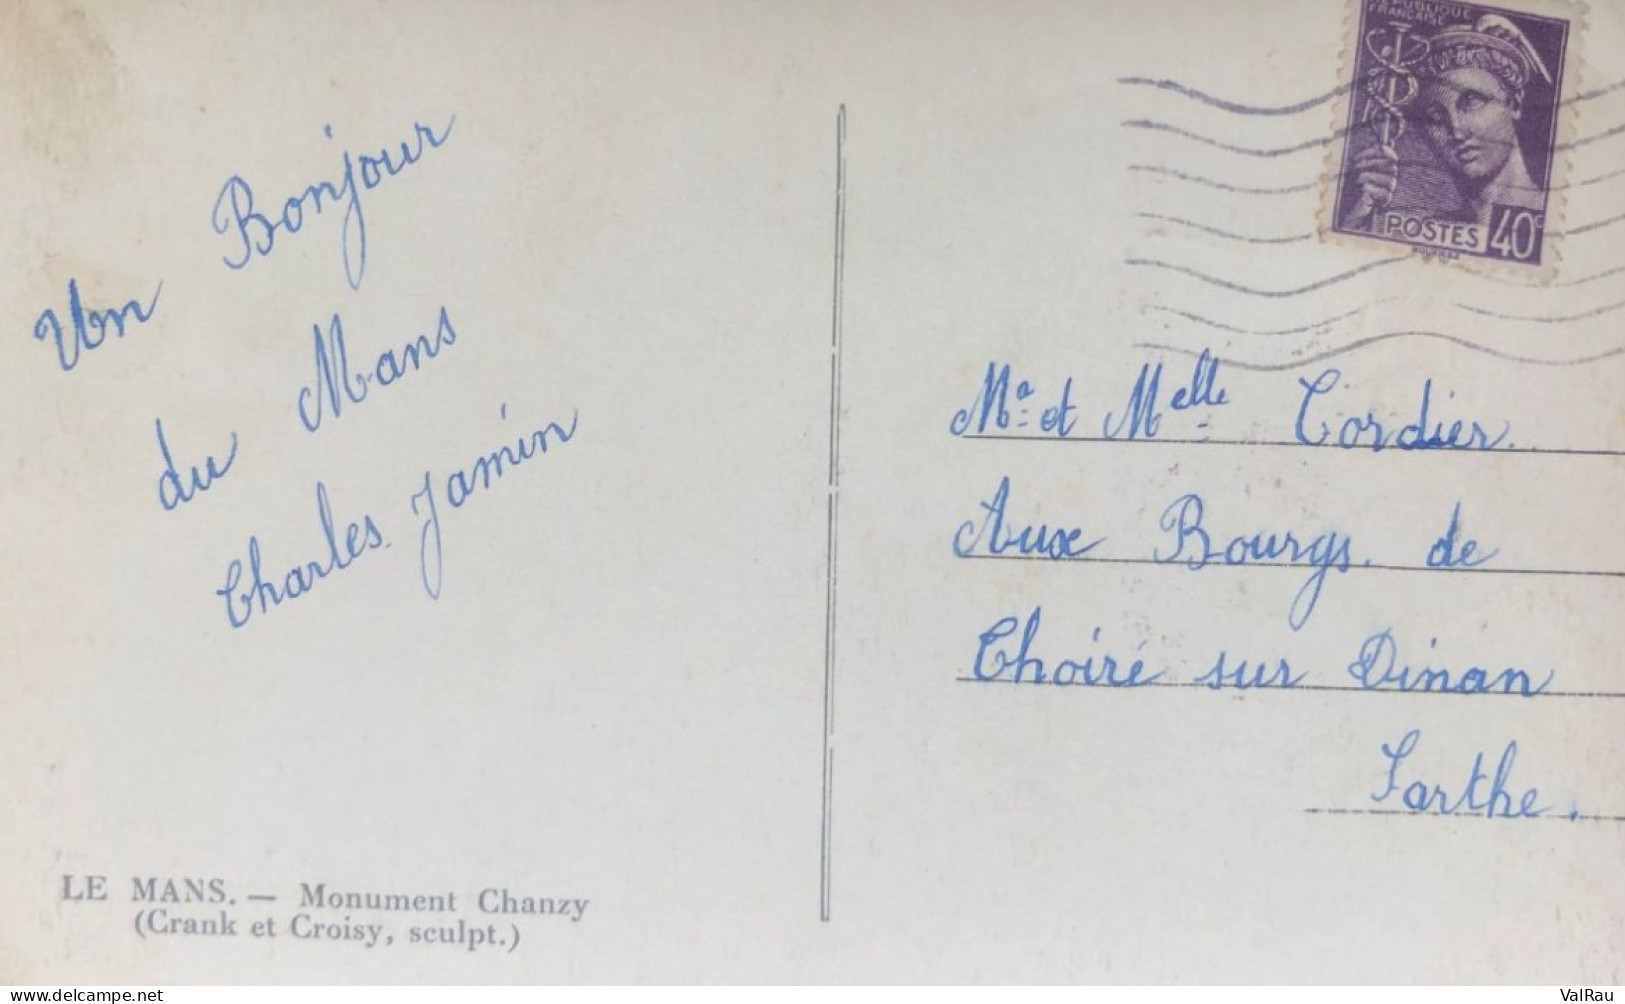 Un Bonjour
du Mans
Charles Jamin
LE MANS. — Monument Chanzy
(Crank et Croisy, sculpt.)
RÉPUBLIQUE
FRANÇAISE
POSTES 40c
Ma et Melle Cordier.
Aux Bourgs. de
Thoiré sur Dinan
Sarthe.
ValRau